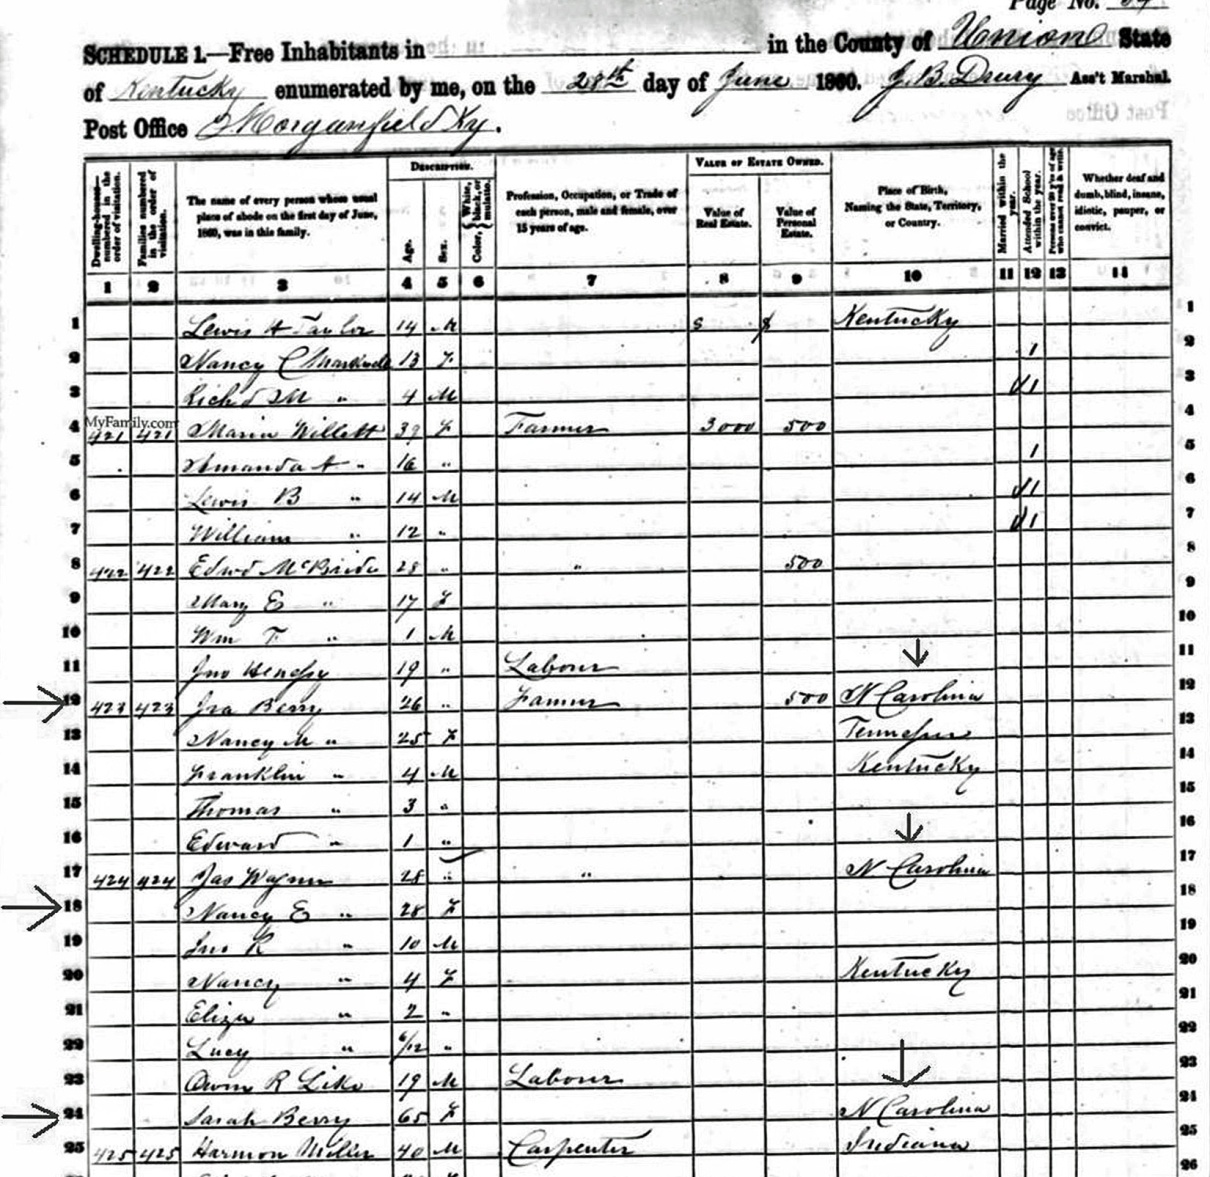 Page No.
SCHEDULE 1.—Free Inhabitants in in the County of Union State
of Kentucky enumerated by me, on the 28th day of June 1860. J. B. Drury Ass't Marshal.
Post Office Morganfield Ky.
Dwelling-houses—numbered in the order of visitation.
Families numbered in the order of visitation.
The name of every person whose usual place of abode on the first day of June, 1860, was in this family.
DESCRIPTION.
Age.
Sex.
Color, White, black, or mulatto.
Profession, Occupation, or Trade of each person, male and female, over 15 years of age.
VALUE OF ESTATE OWNED.
Value of Real Estate.
Value of Personal Estate.
Place of Birth, Naming the State, Territory, or Country.
Married within the year.
Attended School within the year.
Whether deaf and dumb, blind, insane, idiotic, pauper, or convict.
1 2 3 4 5 6 7 8 9 10 11 12 13 14
1 Lewis H Taylor 14 M $ $ Kentucky 1
2 Nancy C 13 F 1 2
3 Richd M " 4 M 1 3
MyFamily.com
4 421 421 Maria Willett 39 F Farmer 3000 500 4
5 Amanda A " 16 " 1 5
6 Lewis B " 14 M 1 6
7 William " 12 " 1 7
8 422 422 Edwd McBride 28 " " 500 8
9 Mary E " 17 F 9
10 Wm F " 1 M 10
11 Jno 19 " Labour 11
12 423 423 Ira Berry 26 " Farmer 500 N Carolina 12
13 Nancy M " 25 F Tennessee 13
14 Franklin " 4 M Kentucky 14
15 Thomas " 3 " 15
16 Edward " 1 " 16
17 424 424 Jas 28 " " N Carolina 17
18 Nancy E " 28 F 18
19 Jno R " 10 M 19
20 Nancy " 4 F Kentucky 20
21 Eliza " 2 " 21
22 Lucy " 6/12 " 22
23 Owen R Like 19 M Labour 23
24 Sarah Berry 65 F N Carolina 24
25 425 425 Harmon Miller 40 M Carpenter Indiana 25
26